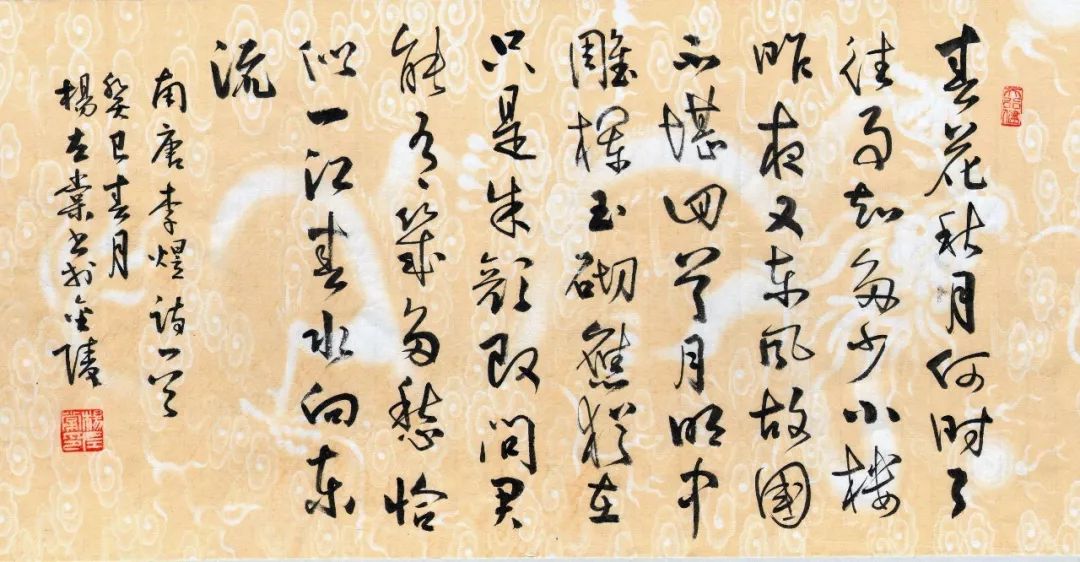 春花秋月何时了
往事知多少小楼
昨夜又东风故國
不堪回首月明中
雕栏玉砌應犹在
只是朱颜改問君
能有幾多愁恰
似一江春水向东
流
南唐李煜诗一首
癸巳春月
楊左棠书於金陵